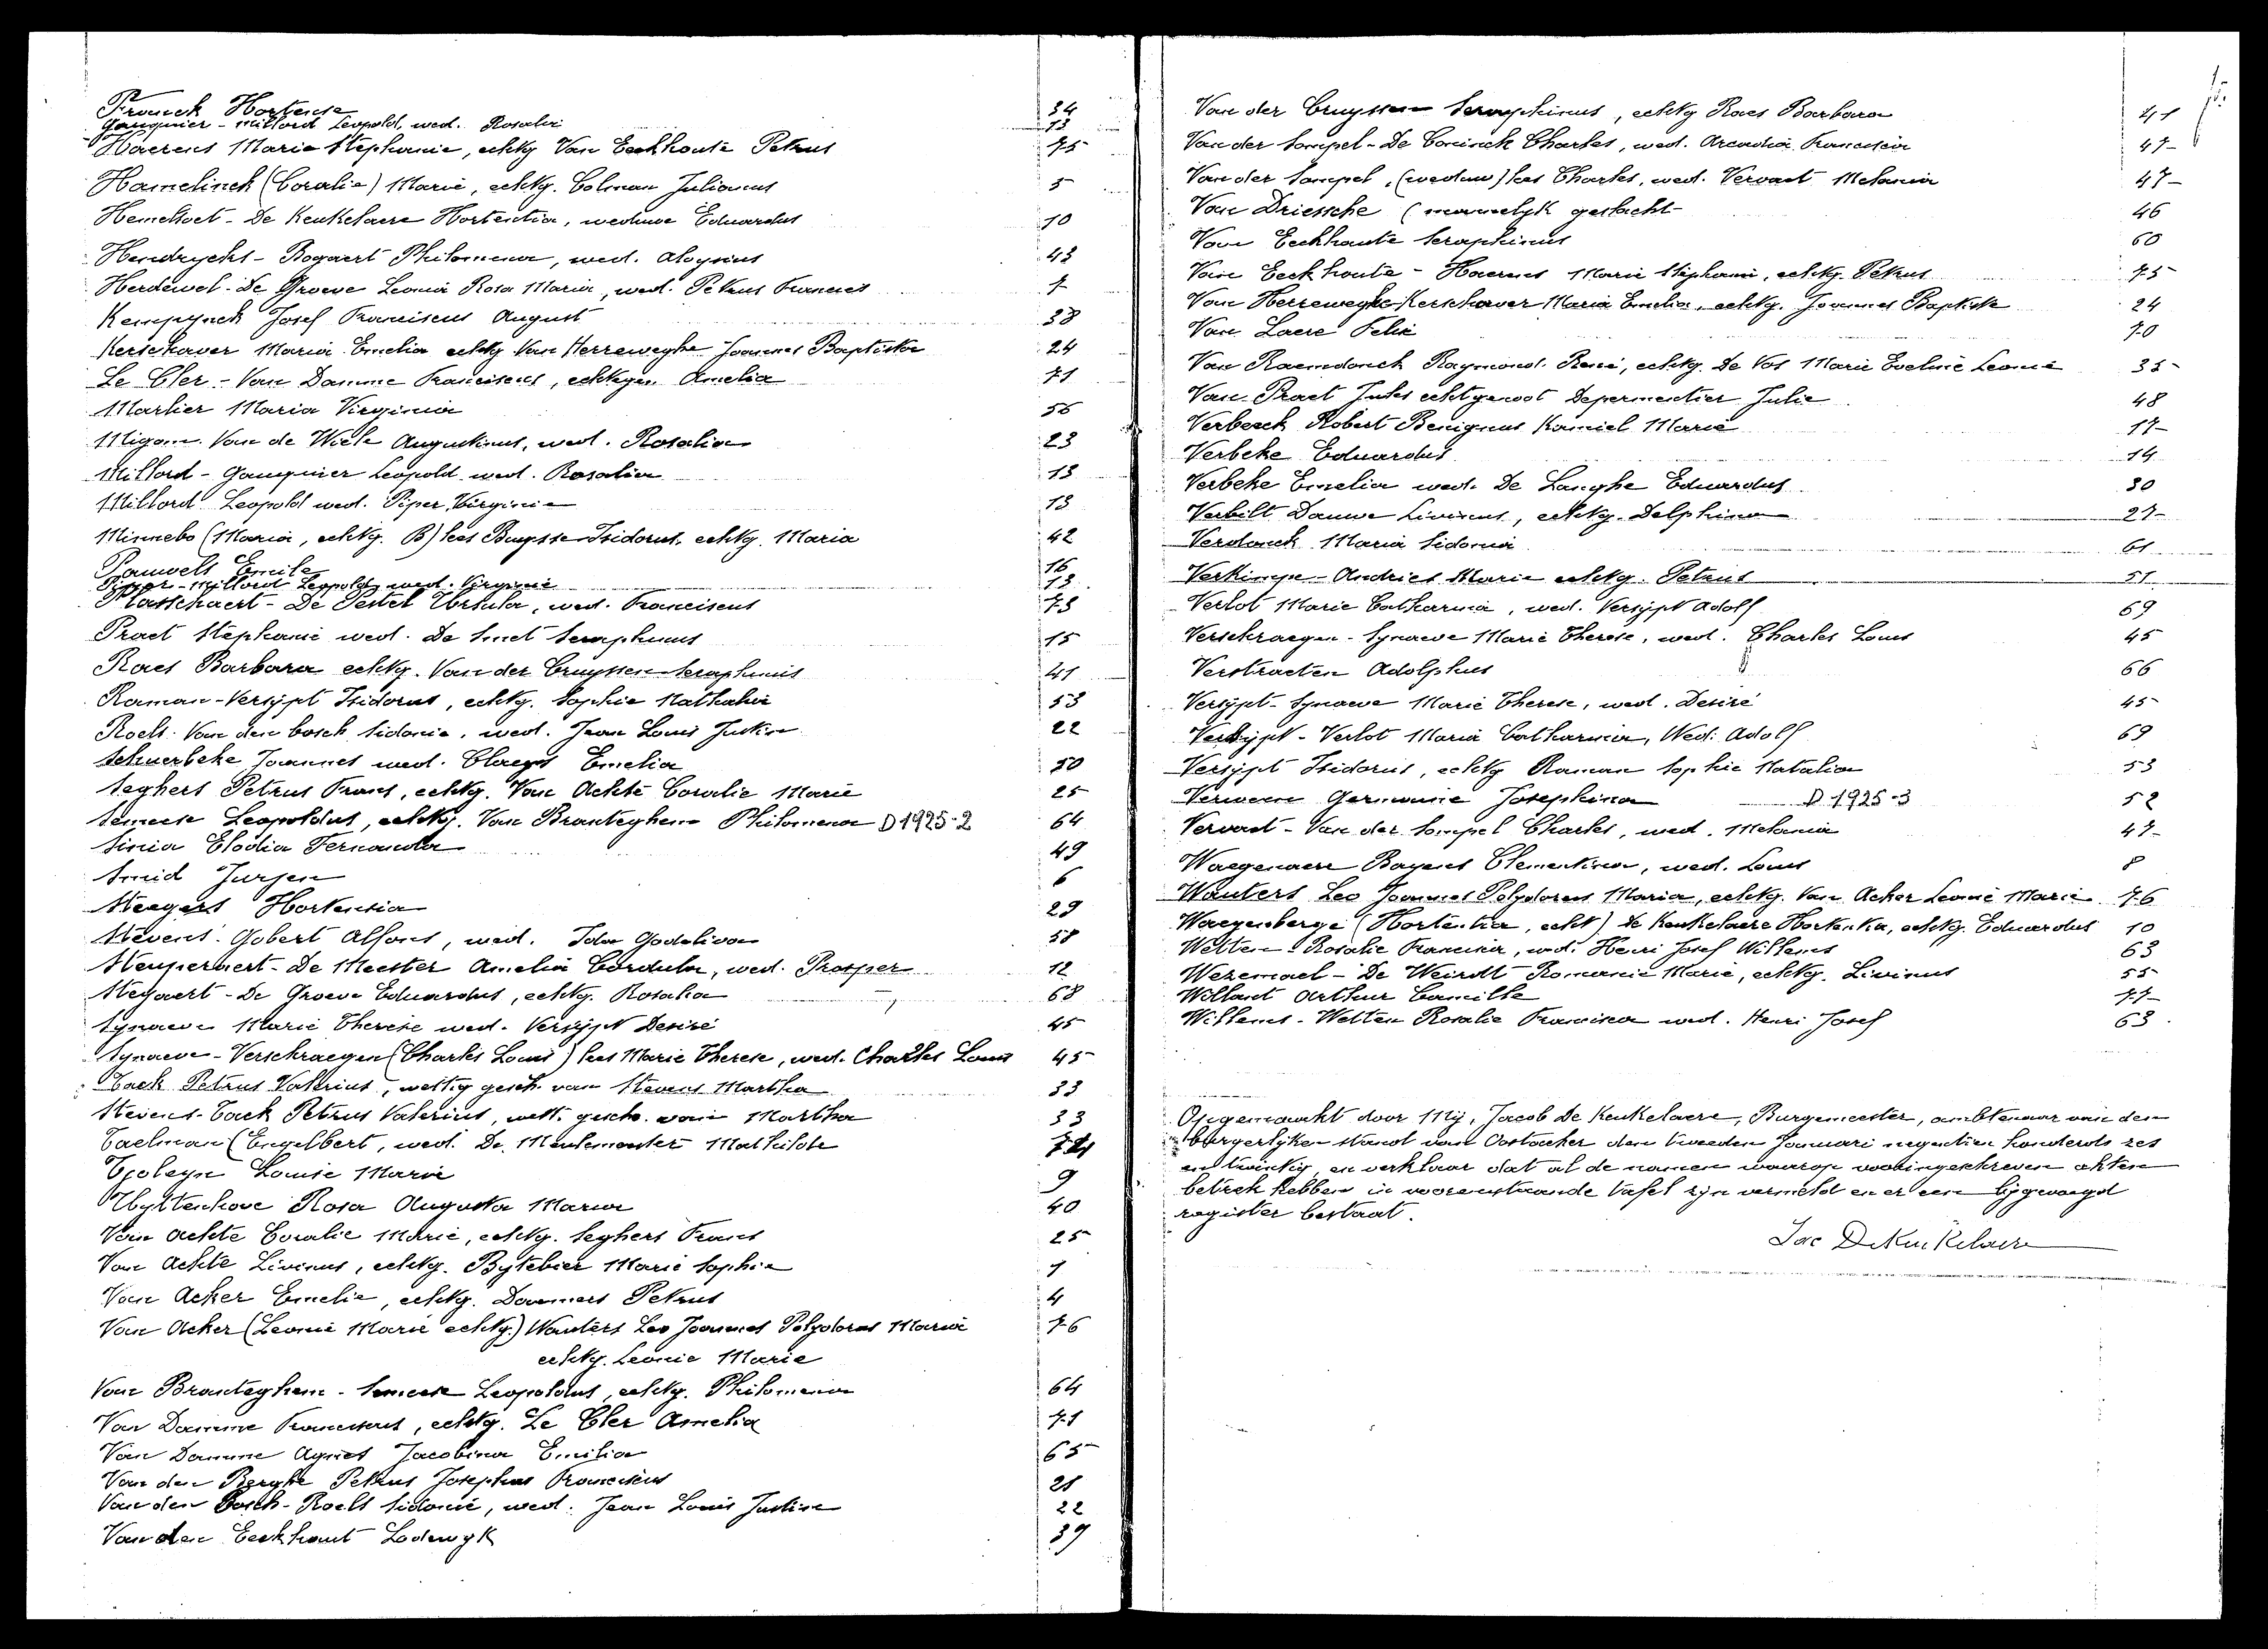 Franck Hortense 34
Gauquier - Millord Leopold, wed. Rosalie 13
Haerens Maria Stephanie, echtg Van Eeckhoute Petrus 75
Hamelinck (Coralie) Marie, echtg. Colman Julianus 5
Hemelsoet - De Keukelaere Hortentia, weduwe Eduardus 10
Hendryckx - Bogaert Philomena, wed. Aloysius 43
Herdewel - De Groeve Leonia Rosa Maria, wed. Petrus Francies 7
Kempynck Josef Franciscus August 38
Kerschaver Maria Emelia echtg Van Herreweghe Joannes Baptista 24
Le Cler - Van Damme Franciscus, echtgen Amelia 71
Martier Maria Virginia 56
Migom. Van de Wiele Augustinus, wed. Rosalia 23
Millord - Gauquier Leopold wed. Rosalia 13
Millord Leopold wed. Piper Virginie 13
Minnebo (Maria, echtg. B) lees Buysse Isidorus, echtg. Maria 42
Pauwels Emile 16
Piper - Millord Leopold, wed. Virginie 13.
Plasschaert - De Pestel Ursula, wed. Franciscus 73
Praet Stephanie wed. De Smet Seraphinus 15
Raes Barbara echtg. Van der Cruyssen Seraphinus 41
Raman - Versypt Isidorus, echtg. Sophie Nathalia 53
Roels. Van den bosch Sidonie, wed. Jean Louis Justin 22
Schuerbeke Joannes wed. Claeys Emelia 50
Seghers Petrus Frans, echtg. Van Achte Coralie Marie 25
Semeese Leopoldus, echtg. Van Branteghem Philomena D 1925-2 64
Sinia Elodia Fernanda 49
Smid Jurjen 6
Steegers Hortensia 29
Stevens. Gobert Alfons, wed. Ida Godeliva 58
Steuperaert - De Meester Amelia Cordula, wed. Prosper 12
Steyaert - De Groeve Eduardus, echtg. Rosalia 68
Synaeve Marie Therese wed. Versypt Desiré 45
Synaeve - Verschraegen (Charles Louis) lees Marie Therese, wed. Charles Louis 45
Tack Petrus Valerius, wettig gesch. van Stevens Martha 33
Stevens - Tack Petrus Valerius, wett. gesch. van Martha 33
Taelman (Engelbert, wed. De Meulemeester Mathilde 74
Tjoleyn Louise Marie 9
Uyttenhove Rosa Augusta Maria 40
Van Achte Coralie Marie, echtg. Seghers Frans 25
Van Achte Livinus, echtg. Bytebier Marie Sophie 7
Van Acker Emelie, echtg. Dauwers Petrus 4
Van Acker (Leonie Marie echtg.) Wauters Leo Joannes Polydorus Maria 76
echtg. Leonie Marie
Van Branteghem - Semeese Leopoldus, echtg. Philomena 64
Van Damme Franciscus, echtg. Le Cler Amelia 71
Van Damme Agnes Jacobina Emilia 65
Van den Berghe Petrus Josephus Franciscus 21
Van den Bosch - Roels Sidonie, wed. Jean Louis Justin 22
Van den Eeckhaut Lodewyk 39
Van der Cruyssen Seraphinus, echtg Raes Barbara 41
Van der Sompel - De Coninck Charles, wed. Arcadia Francisca 47
Van der Sompel, (weduw) lees Charles, wed. Vervaet Melania 47
Van Driessche (mannelyk geslacht 46
Van Eeckhaute Seraphinus 60
Van Eeckhoute - Haerens Marie Stephanie, echtg. Petrus 75
Van Herreweghe Kerschaver Maria Emelia, echtg. Joannes Baptiste 24
Van Laere Felix 70
Van Raemdonck Raymond René, echtg. De Vos Marie Eveline Leonie 35
Van Praet Jules echtgenoot Depermentier Julie 48
Verbeeck Robert Benignus Kamiel Marie 17
Verbeke Eduardus 14
Verbeke Emelia wed. De Langhe Eduardus 30
Verbilt Dauwe Livinus, echtg. Delphina 27
Verdonck Maria Sidonia 61
Verkimpe - Andries Marie echtg. Petrus 51
Verlot Marie Catharina, wed. Versypt Adolf 69
Verschraegen - Synaeve Marie Therese, wed. Charles Louis 45
Verstraeten Adolphus 66
Versypt - Synaeve Marie Therese, wed. Desiré 45
Versypt - Verlot Maria Catharina, Wed. Adolf 69
Versypt Isidorus, echtg Raman Sophie Natalia 53
Verween Germanie Josephina D 1925-3 52
Vervaet - Van der Sompel Charles, wed. Melania 47
Waegenaere Bayens Clementina, wed. Louis 8
Wauters Leo Joannes Polydorus Maria, echtg. Van Acker Leonie Marie 76
Waegenberge (Hortentia, echt) De Keukelaere Hortentia, echtg. Eduardus 10
Welten Rosalie Francisca, wd. Henri Josef Willems 63
Wezemael - De Weirdt Romanie Marie, echtg. Livinus 55
Willaert Arthur Camille 77
Willems - Welten Rosalie Francisca wed. Henri Josef 63
Opgemaakt door Mij, Jacob De Keukelaere, Burgemeester, ambtenaar van den
burgerlyken stand van Oostacker den tweeden Januari negentien honderd zes
en twintig, en verklaar dat al de namen waarop vooringeschreven akten
betrek hebben in voorenstaande tafel zijn vermeld en er een bijgevoegd
register bestaat.
Jac DeKeukelaere